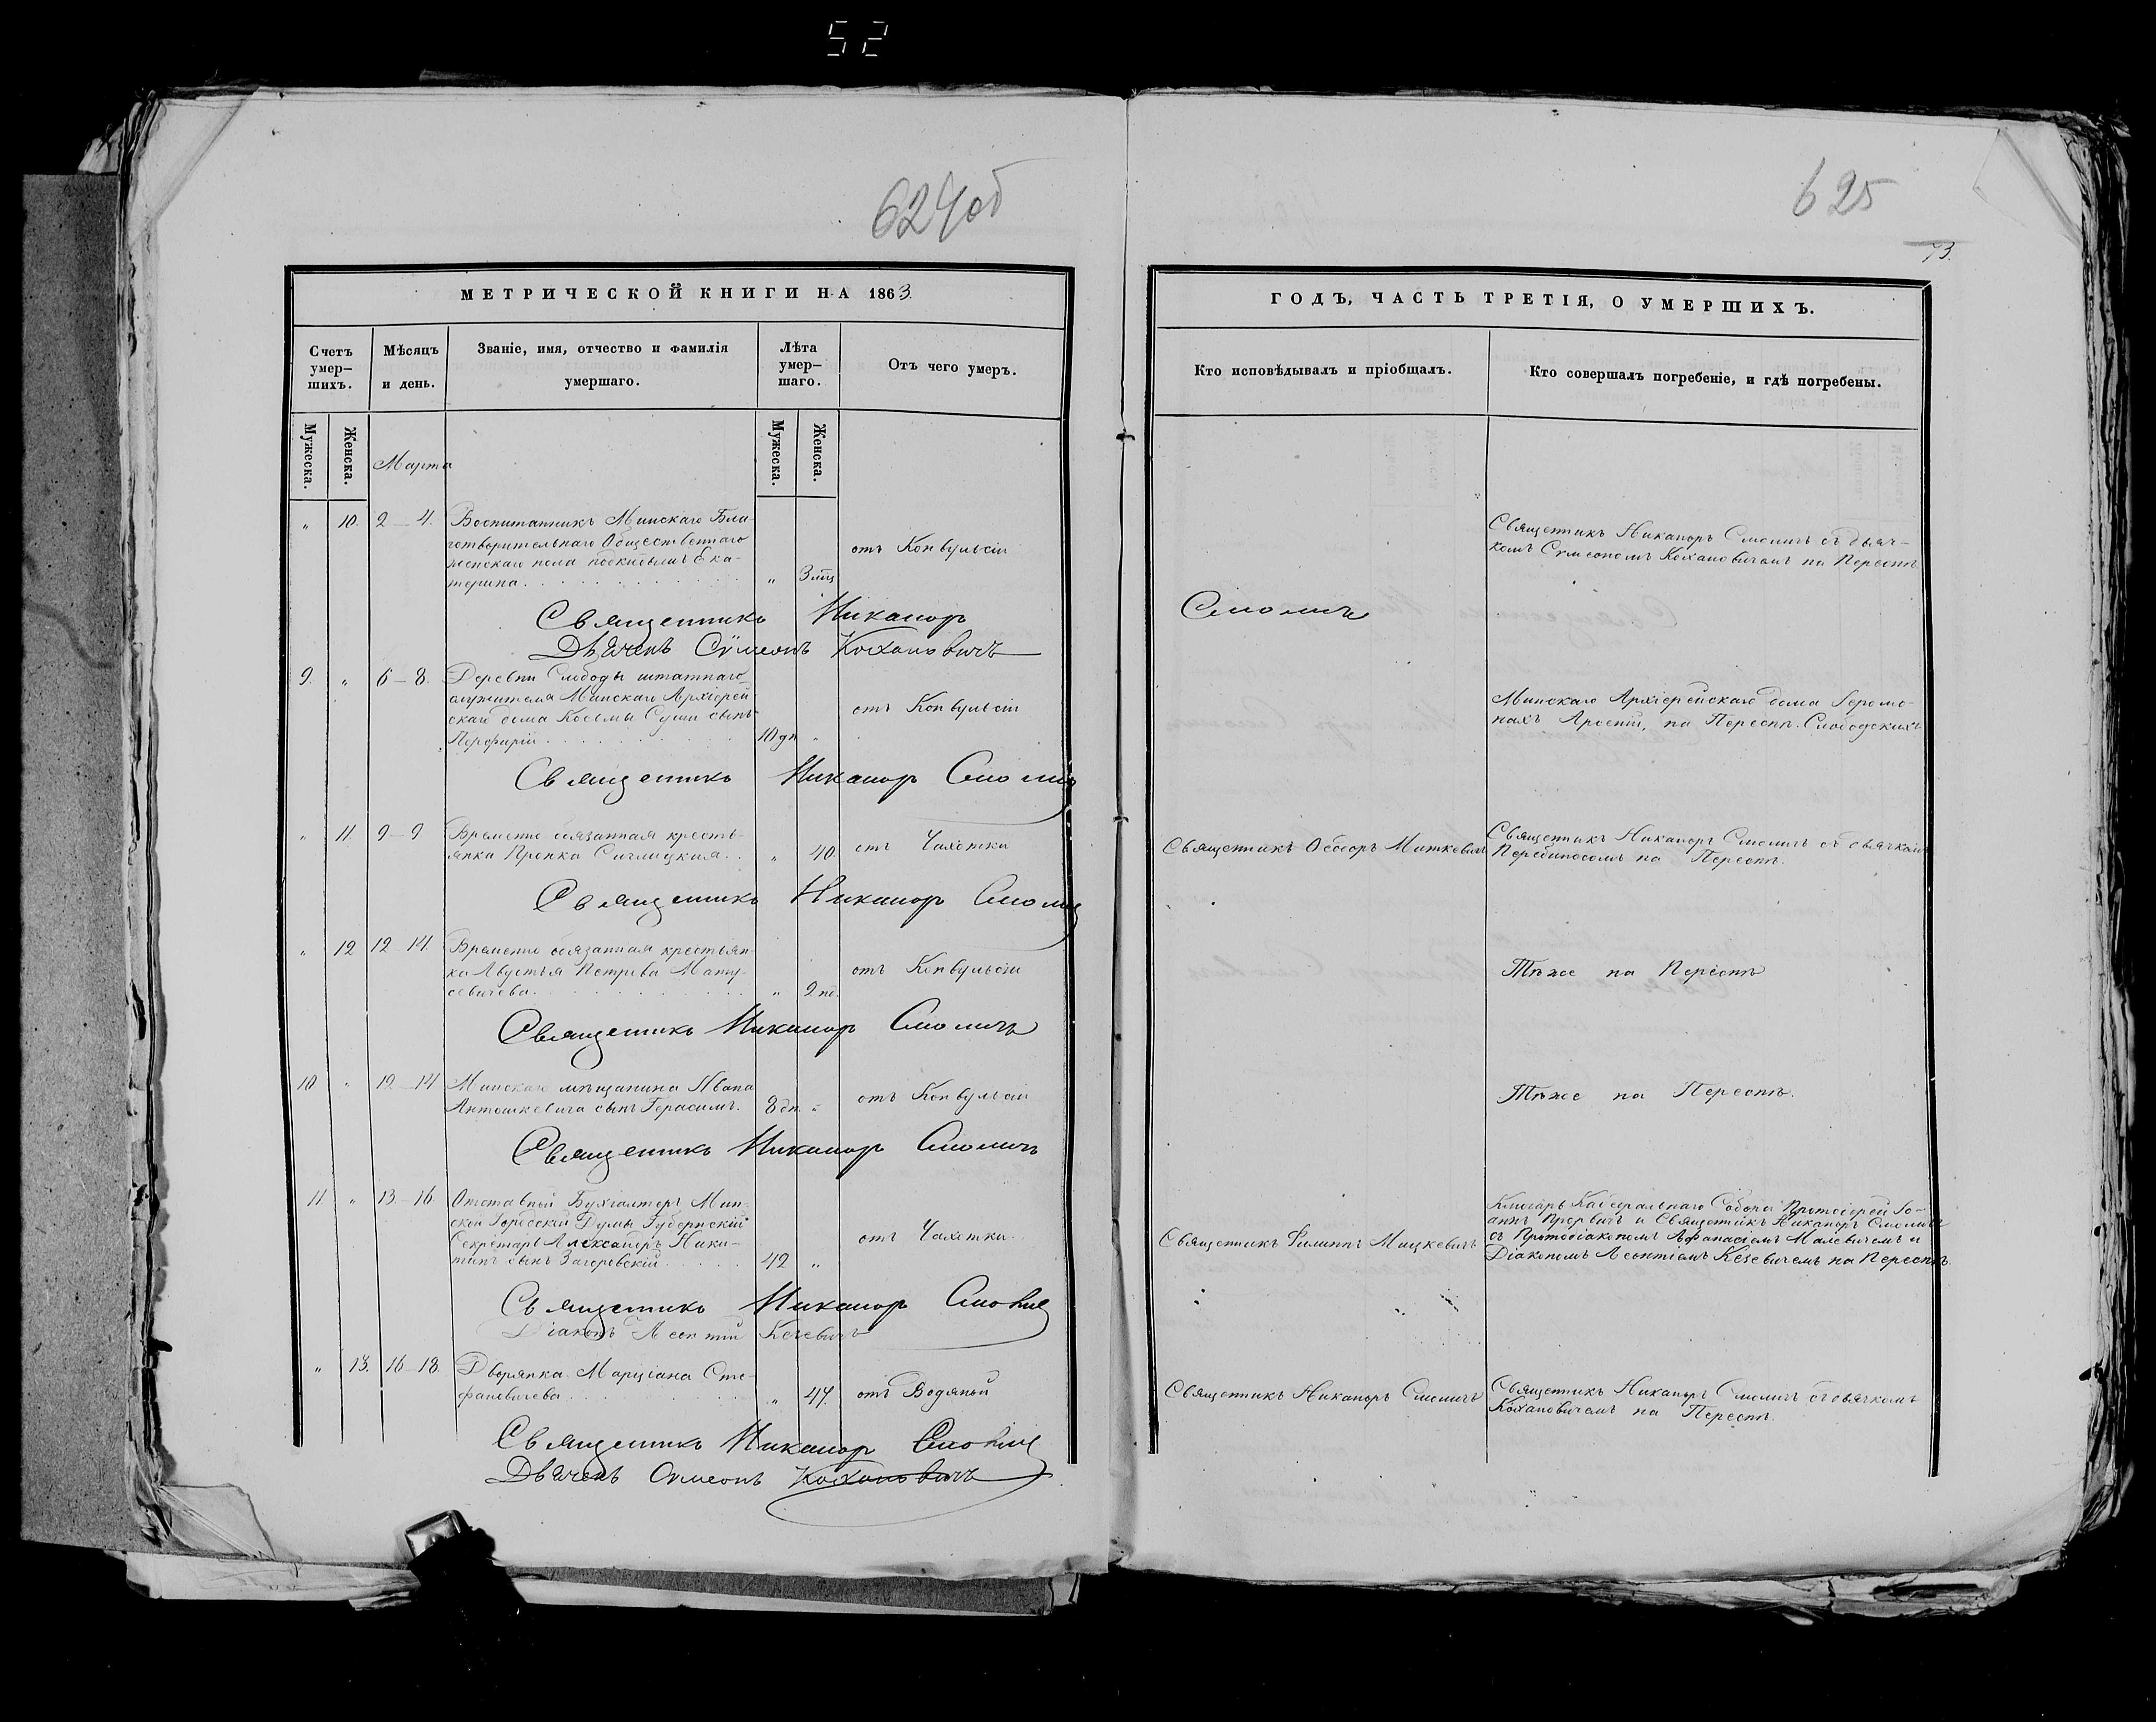 52
624об
625
73.
МЕТРИЧЕСКОЙ КНИГИ НА 1863.
ГОДЪ, ЧАСТЬ ТРЕТІЯ, О УМЕРШИХЪ.
Счетъ умер-
шихъ.
Мѣсяцъ
и день.
Званіе, имя, отчество и фамилія
умершаго.
Лѣта
умер-
шаго.
Отъ чего умеръ.
Кто исповѣдывалъ и пріобщалъ.
Кто совершалъ погребеніе, и гдѣ погребены.
Мужеска.
Женска.
Марта
Мужеска.
Женска.
" 10. 2–4. Воспитанникъ Минскаго Бла-
готворительнаго Общественнаго
женскаго пола подкидышъ Ека-
терина. " 3 мц
отъ Конвульсіи
Священникъ Никаноръ Смоличъ съ дьяч-
комъ Сѵмеономъ Кохановичемъ на Переспѣ.
Священникъ Никаноръ Смоличъ
Дьячекъ Сѵмеонъ Кохановичъ
9. " 6–8. Деревни Слободы штатнаго
служителя Минскаго Архіерей-
скаго дома Косьмы Суши сынъ
Перфирій 10 дн "
отъ Конвульсіи
Минскаго Архіерейскаго дома Іеромо-
нахъ Арсеній, на Переспѣ. Слободскихъ
Священникъ Никаноръ Смоличъ
" 11. 9–9. Временно обязанная кресть-
янка Пропка " 40.
отъ Чахотки
Священникъ Ѳеодоръ Миткевичъ
Священникъ Никаноръ Смоличъ съ дьячкомъ
на Переспѣ.
Священникъ Никаноръ Смоличъ
" 12 12–14. Временно обязанная крестьян-
ка Августья Петрова Мату-
севичева. " 2 нд.
отъ Конвульсіи
Тѣже на Переспѣ
Священникъ Никаноръ Смоличъ
10 " 12–14 Минскаго мѣщанина Ивана
Антошкевича сынъ Герасимъ. 8 дн. "
отъ Конвульсіи
Тѣже на Переспѣ.
Священникъ Никаноръ Смоличъ
11 " 13–16. Отставный Бухгалтеръ Мин-
ской Городской Думы Губернскій
Секретарь Александръ Ники-
тинъ сынъ Загоровскій 42 "
отъ Чахотки.
Священникъ Филиппъ Мицкевичъ
Ключарь Каѳедральнаго Собора Протоіерей Іо-
аннъ и Священникъ Никаноръ Смоличъ
съ Протодіакономъ Аѳанасіемъ Малевичемъ и
Діакономъ Леонтіемъ Кезевичемъ на Переспѣ.
Священникъ Никаноръ Смоличъ
Діаконъ Леонтій Кезевичъ
" 13. 16–18. Дворянка Марціана Сте-
фановичева " 47.
отъ Водяной
Священникъ Никаноръ Смоличъ
Священникъ Никаноръ Смоличъ съ дьячкомъ
Кохановичемъ на Переспѣ.
Священникъ Никаноръ Смоличъ
Дьячекъ Сѵмеонъ Кохановичъ